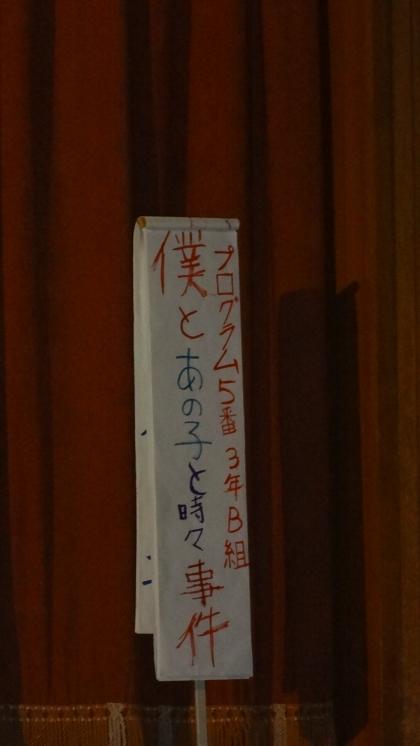 プログラム5番 3年B組
僕とあの子と時々事件